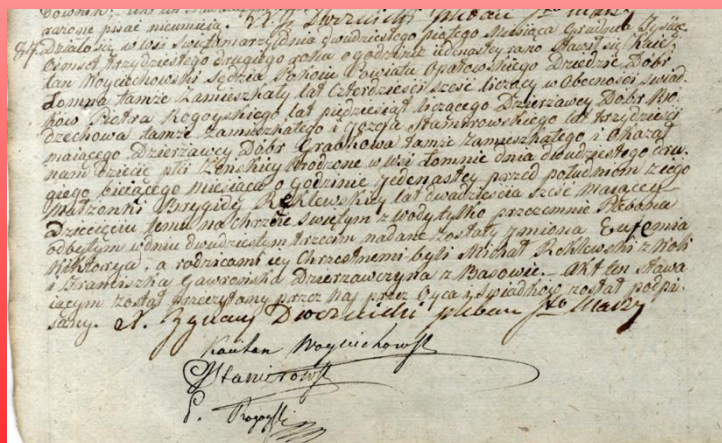 rażone pisać nieumieią. X. J. Dworzeicki pleban
Działo się w wsi Swiętamarzy dnia dwudziestego piątego Miesiąca Grudnia Tysiąc
Osmset trzydziestego drugiego roku o godzinie iedenastey rano Stawił się Kaie-
tan Woyciechowski Sędzia Pokoiu Powiatu Opatowskiego Dziedzic Dobr
Łomna tamże Zamieszkały lat Czterdzieści sześć liczący w Obecności Swiad-
kow Piotra Rogoyskiego lat pięćdziesiąt liczącego Dzierżawcy Dobr
dzechowa tamże Zamieszkałego i Józefa Stamirowskiego lat trzydzieści
maiącego Dzierżawcy Dobr Grachowa tamże Zamieszkałego i Okazał
nam dziecię płci Żeńskiey Urodzone w Wsi Łomnie dnia dwudziestego dru-
giego bieżącego miesiąca o godzinie jedenastey przed południem z iego
Małżonki Brygidy Reklewskiey lat dwadzieścia sześć maiącey
Dziecięciu temu na chrzcie swiętym z wody tylko przezemnie Plebana
odbytym w dniu dwudziestym trzecim nadane zostały ymiona Eufemia
Wiktorya, a rodzicami iey Chrzestnemi byli Michał Reklewski z Woli
i Franciszka Gawrońska Dzierzawczyna z Basowic. – Akt ten stawa-
iącym został przeczytany przez Nas przez Oyca i swiadkow został podpi-
sany. X. Ignacy Dworzeicki pleban Sto Marzy
Kaietan Woyciechowski
JStamirowski
P. Rogoyski